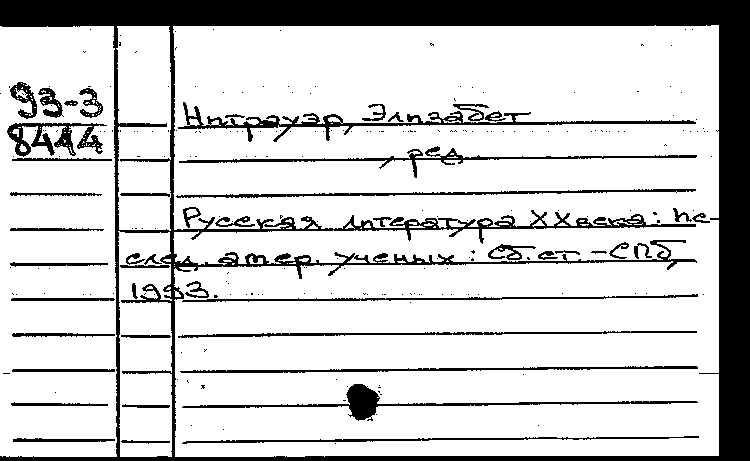 93-3
8414
Нитрауэр, Элизабет
, ред.
Русская литература XX века: Ис-
след. амер. ученых: Сб. ст. - СПб,
1993.